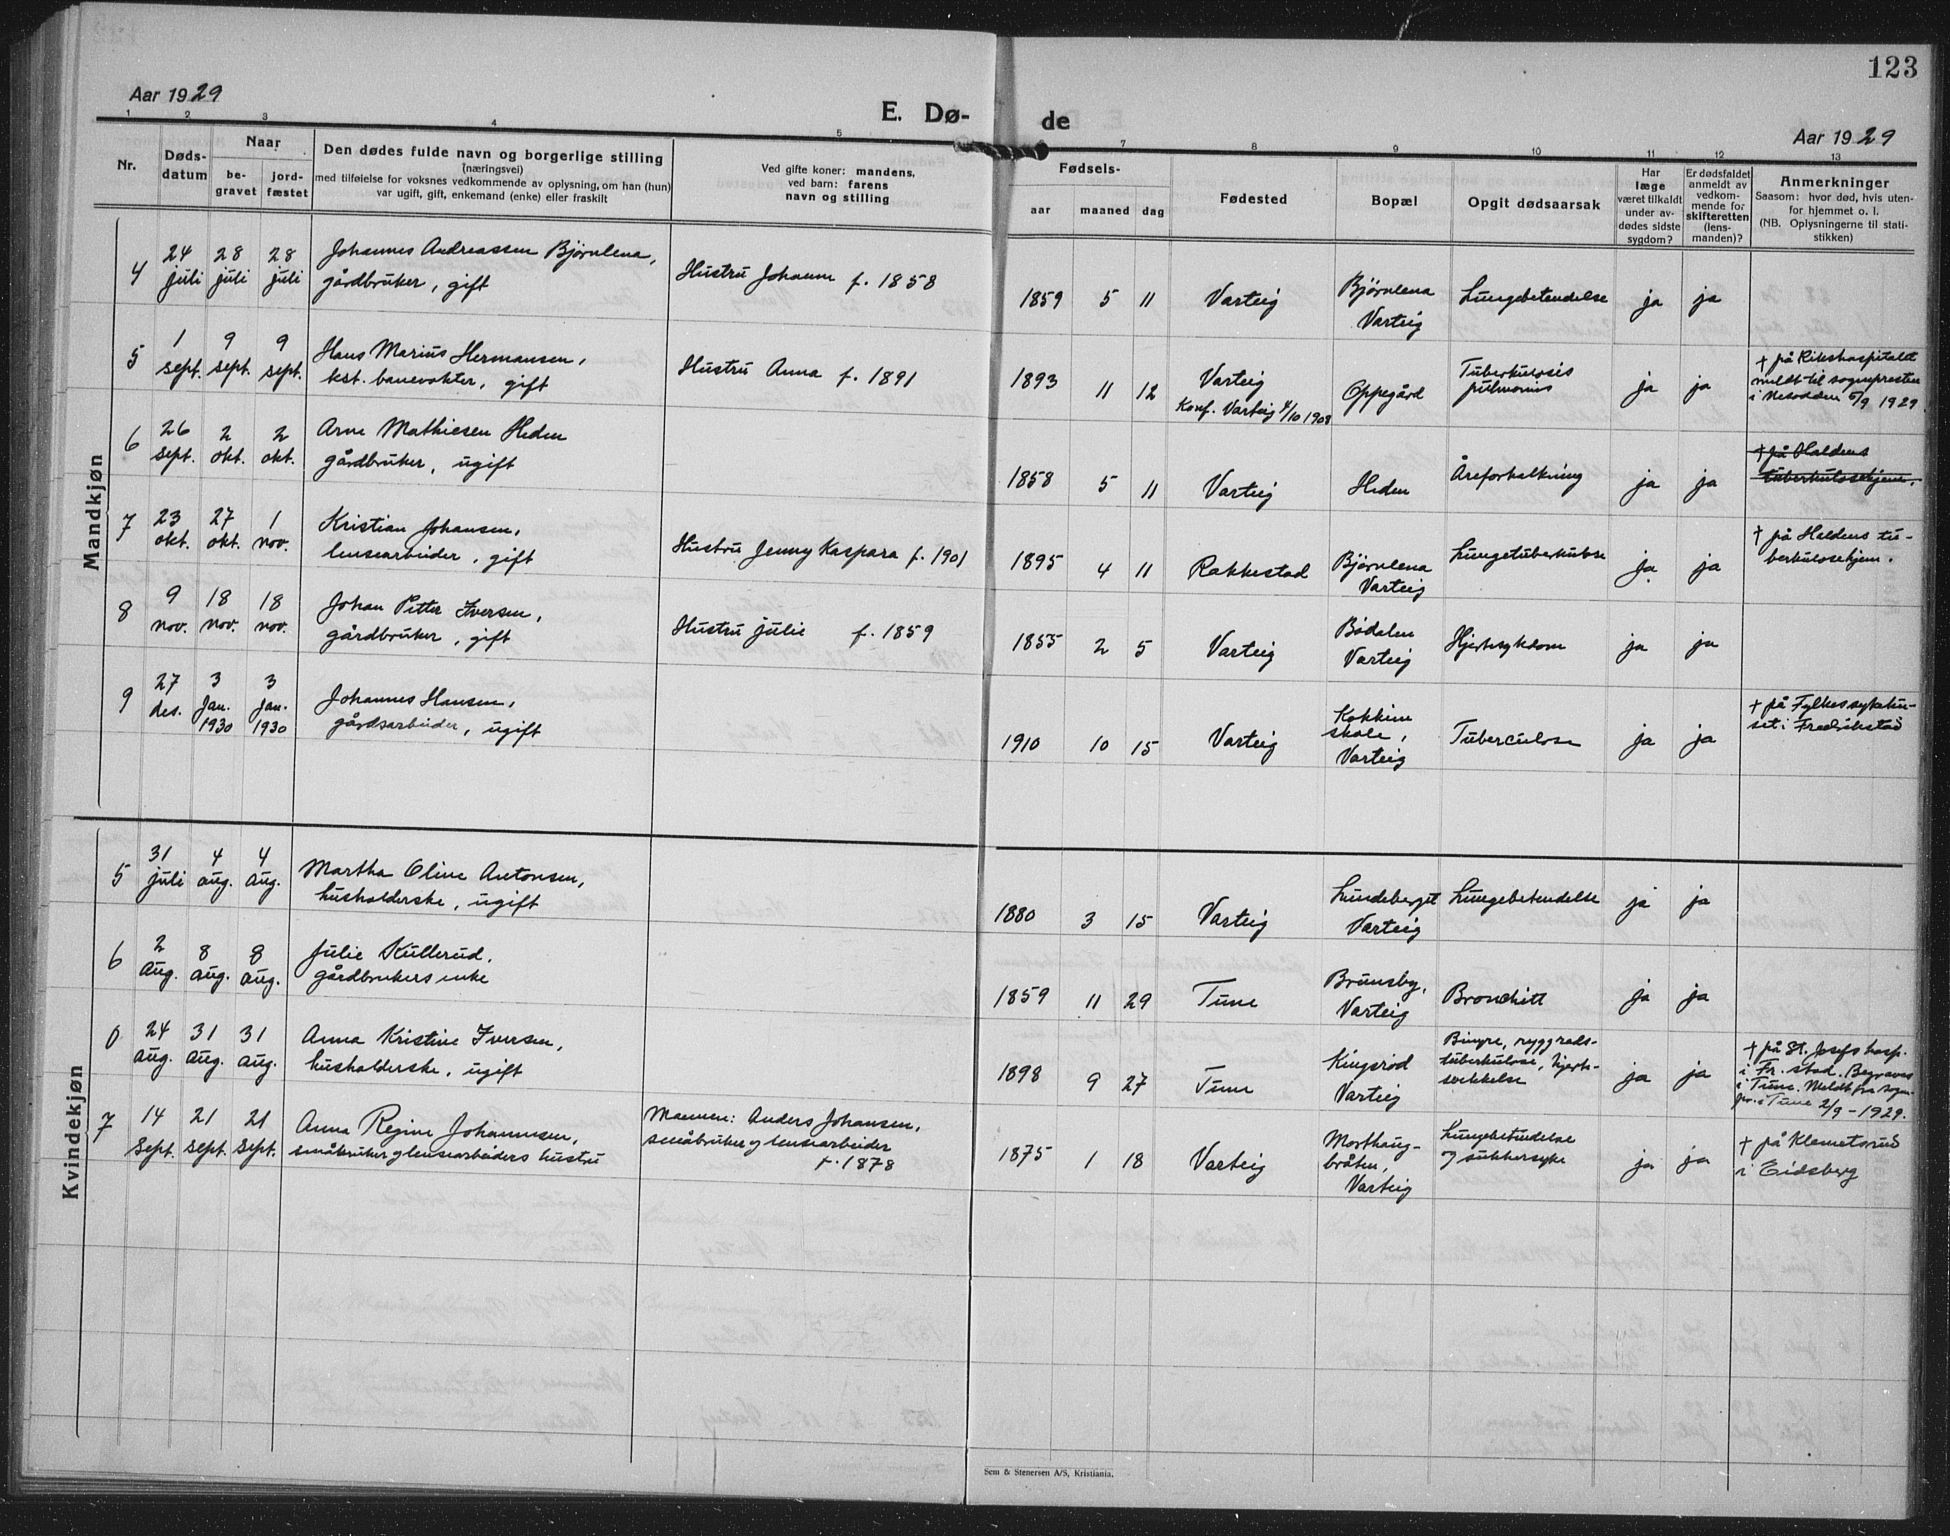 123
Aar 1929
E. Dø-
de
Aar 1929
1 2 3 4 5 7 8 9 10 11 12 13
Nr.
Døds-
datum
Naar
be-
gravet
jord-
fæstet
Den dødes fulde navn og borgerlige stilling
(næringsvei)
med tilføielse for voksnes vedkommende av oplysning, om han (hun)
var ugift, gift, enkemand (enke) eller fraskilt
Ved gifte koner: mandens,
ved barn: farens
navn og stilling
Fødsels-
aar maaned dag
Fødested
Bopæl
Opgit dødsaarsak
Har
læge
været tilkaldt
under av-
dødes sidste
sygdom?
Er dødsfaldet
anmeldt av
vedkom-
mende for
skifteretten
(lens-
manden)?
Anmerkninger
Saasom: hvor død, hvis uten-
for hjemmet o. l.
(NB. Oplysningerne til stati-
stikken)
Mandkjøn
4
24
juli
28
juli
28
juli
Johannes Andreassen Bjørnlena,
gårdbruker, gift
Hustru Johanne f. 1858
1859 5 11 Varteig
Bjørnlena
Varteig
Lungebetendelse
ja ja
5
1
sept.
9
sept.
9
sept.
Hans Marius Hermansen,
kst. banevokter, gift
Hustru Anna f. 1891
1893 11 12
Varteig
Konf. Varteig 4/10 1908
Oppegård
Tuberkulosis
pulmonis
ja ja
† på Rikshospitalet
meldt til sognepresten
i Nesodden 5/9 1929.
6
26
sept.
2
okt.
2
okt.
Arne Mathiesen Heden
gårdbruker, ugift
1858 5 11 Varteig
Heden
Åreforkalkning
ja ja
† på Haldens
tuberkulosehjem.
7
23
okt.
27
okt.
1
nov.
Kristian Johansen,
lensearbeider, gift
Hustru Jenny Kaspara f. 1901
1895 4 11 Rakkestad
Bjørnlena
Varteig
Lungetuberkulose
ja ja
† på Haldens tu-
berkulosehjem.
8
9
nov.
18
nov.
18
nov.
Johan Petter Iversen,
gårdbruker, gift
Hustru Julie f. 1859
1855 2 5 Varteig
Bødalen
Varteig
Hjertesykdom
ja ja
9
27
des.
3
Jan.
1930
3
Jan.
1930
Johannes Hansen,
gårdsarbeider, ugift
1910 10 15 Varteig
skole,
Varteig
Tuberculose
ja ja
† på Fylkessykehu-
set i Fredrikstad
Kvindekjøn
5
31
juli
4
aug.
4
aug.
Martha Oline Antonsen,
husholderske, ugift
1880 3 15 Varteig
Lundeberget
Varteig
Lungebetendelse
ja ja
6
2
aug.
8
aug.
8
aug.
Julie Kullerud,
gårdbrukers enke
1859 11 29 Tune
Brunsby,
Varteig
Bronchitt
ja ja
0
24
aug.
31
aug.
31
aug.
Anna Kristine Iversen,
husholderske, ugift
1898 9 27 Tune
Kingsrød
Varteig
Binyre, ryggrads-
tuberkulose, hjerte-
svekkelse
ja ja
† på St. Josefs hosp.
i Fr. stad. Begraves
i Tune. Meldt fra sogn.
pr. i Tune 2/9 - 1929.
7
14
Sept.
21
sept.
21
sept.
Anna Regine Johannesen,
småbruker og lensearbeiders hustru
Mannen: Anders Johansen,
småbruker og lensearbeider
f. 1878
1875 1 18 Varteig
Morthaug-
bråten,
Varteig
Lungebetendelse
og sukkersyke
ja ja
† på Klemetsrud
i Eidsberg
Sem & Stenersen A/S, Kristiania.